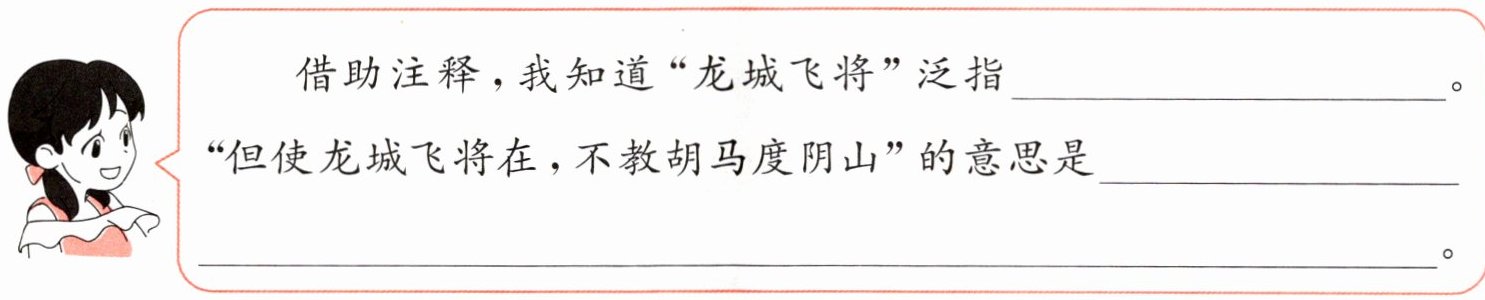 借助注释，我知道“龙城飞将”泛指____________。
“但使龙城飞将在，不教胡马度阴山”的意思是____________
____________。